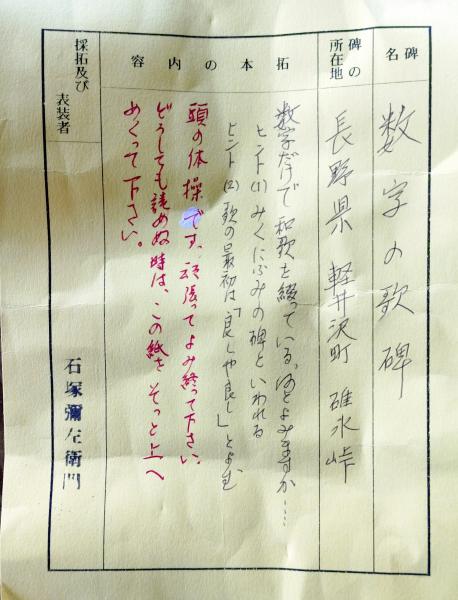 碑名
数字の歌碑
碑の所在地
長野県 軽井沢町 碓氷峠
拓本の内容
数字だけで和歌を綴っている、何とよみますか……
ヒント(1)みくにふみの碑といわれる
ヒント(2)歌の最初は「良しや良し」とよむ
頭の体操です、頑張ってよみ終って下さい。
どうしても読めぬ時は、この紙をそっと上へ
めくって下さい。
採拓及び
表装者
石塚彌左衛門